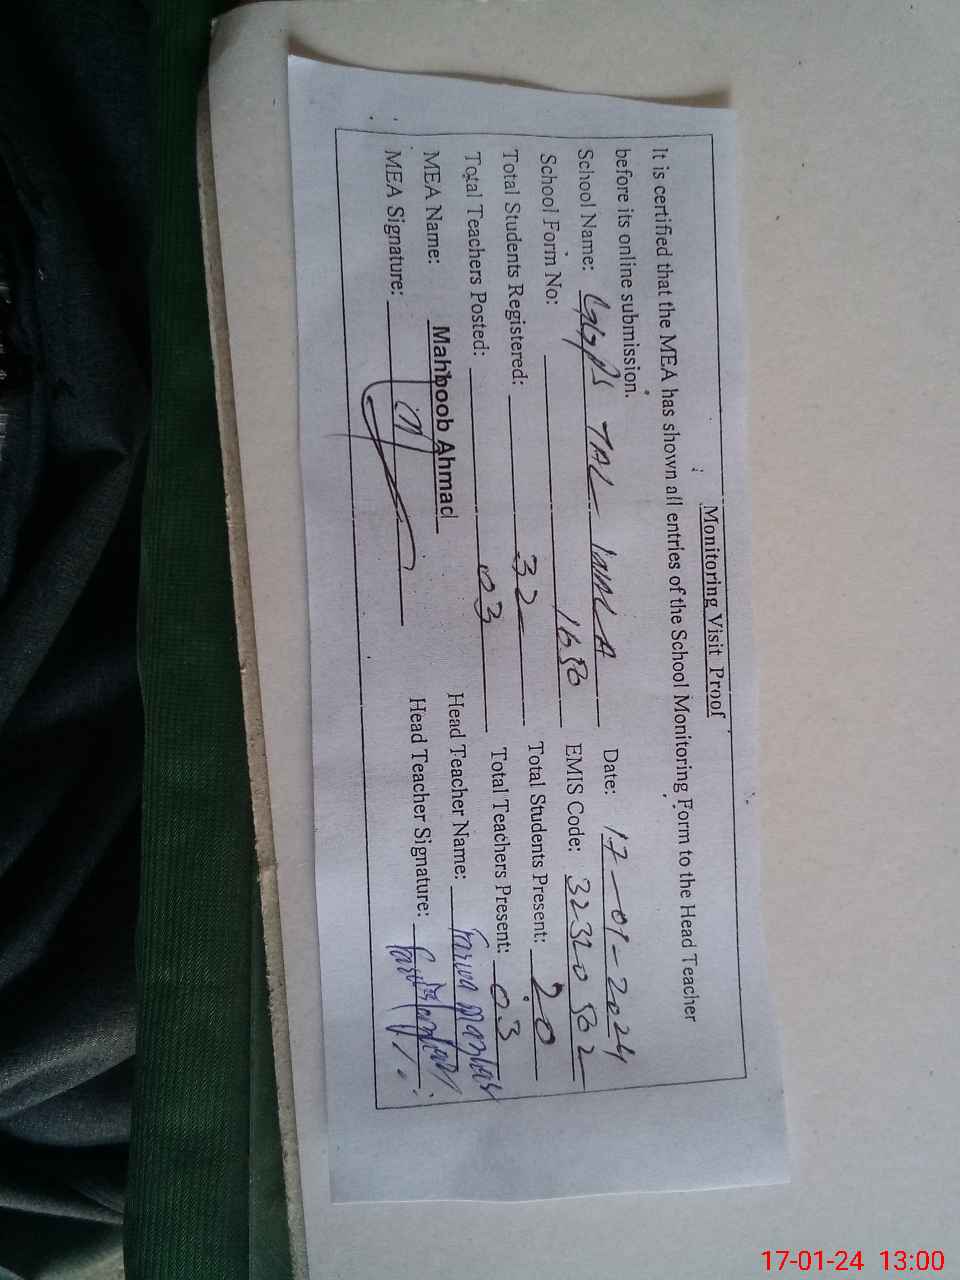 Monitoring Visit Proof
It is certified that the MEA has shown all entries of the School Monitoring Form to the Head Teacher
before its online submission.
School Name: GGPS TAL Date: 17-01-2024
School Form No: 1680 EMIS Code: 32320502
Total Students Registered: 32 Total Students Present: 20
Total Teachers Posted: 03 Total Teachers Present: 03
MEA Name: Mahboob Ahmad Head Teacher Name: Mazhar
MEA Signature: Head Teacher Signature:
17-01-24 13:00